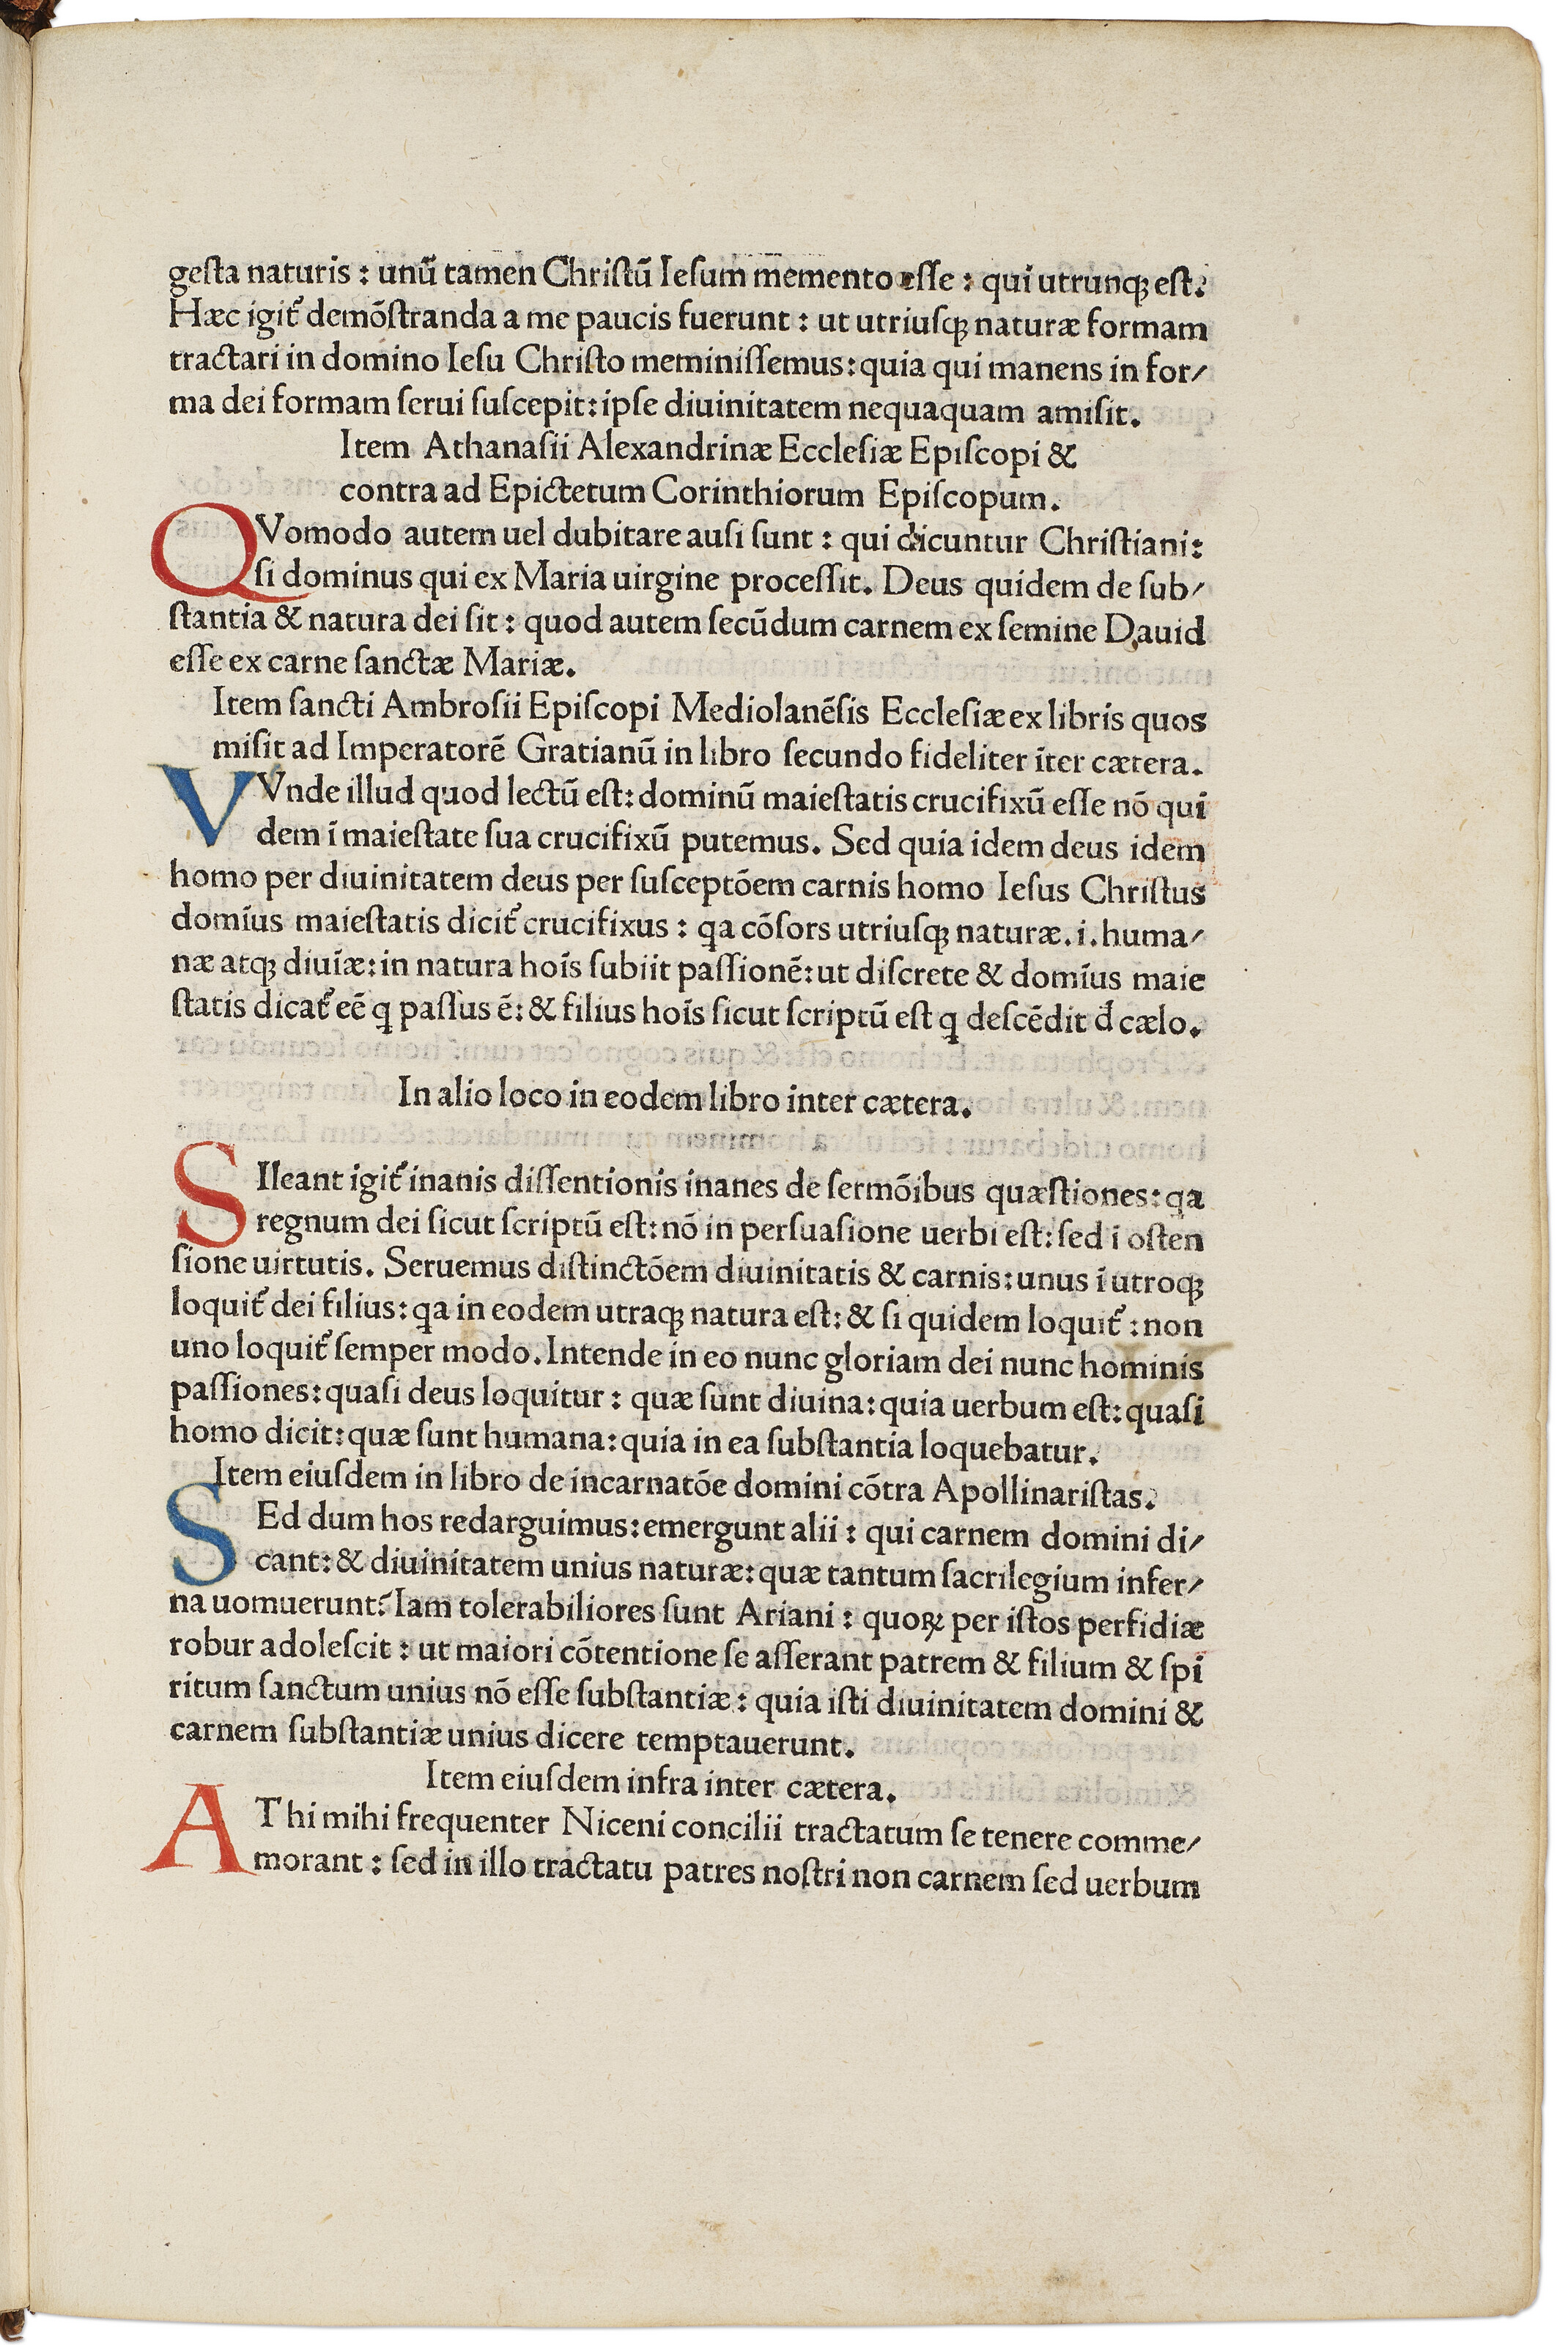 gesta naturis : unū tamen Christū Iesum memento esse : qui utrunqꝫ est.
Hæc igit᷑ demōstranda a me paucis fuerunt : ut utriusqꝫ naturæ formam
tractari in domino Iesu Christo meminissemus: quia qui manens in for/
ma dei formam serui suscepit: ipse diuinitatem nequaquam amisit.
Item Athanasii Alexandrinæ Ecclesiæ Episcopi &
contra ad Epictetum Corinthiorum Episcopum.
QVomodo autem uel dubitare ausi sunt : qui dicuntur Christiani:
si dominus qui ex Maria uirgine processit. Deus quidem de sub/
stantia & natura dei sit : quod autem secūdum carnem ex semine Dauid
esse ex carne sanctæ Mariæ.
Item sancti Ambrosii Episcopi Mediolanēsis Ecclesiæ ex libris quos
misit ad Imperatorē Gratianū in libro secundo fideliter īter cætera.
V Vnde illud quod lectū est: dominū maiestatis crucifixū esse nō qui
dem ī maiestate sua crucifixū putemus. Sed quia idem deus idem
homo per diuinitatem deus per susceptōem carnis homo Iesus Christus
domīus maiestatis dicit᷑ crucifixus : qa cōsors utriusqꝫ naturæ. i. huma/
næ atqꝫ diuīæ: in natura hoīs subiit passionē: ut discrete & domīus maie
statis dicat᷑ eē q passus ē: & filius hoīs sicut scriptū est q descēdit đ cælo.
In alio loco in eodem libro inter cætera.
SIleant igit᷑ inanis dissentionis inanes de sermōibus quæstiones: qa
regnum dei sicut scriptū est: nō in persuasione uerbi est: sed ī osten
sione uirtutis. Seruemus distinctōem diuinitatis & carnis: unus ī utroqꝫ
loquit᷑ dei filius: qa in eodem utraqꝫ natura est: & si quidem loquit᷑ : non
uno loquit᷑ semper modo. Intende in eo nunc gloriam dei nunc hominis
passiones: quasi deus loquitur : quæ sunt diuina: quia uerbum est: quasi
homo dicit: quæ sunt humana: quia in ea substantia loquebatur.
Item eiusdem in libro de incarnatōe domini cōtra Apollinaristas.
SEd dum hos redarguimus: emergunt alii : qui carnem domini di/
cant: & diuinitatem unius naturæ: quæ tantum sacrilegium infer/
na uomuerunt? Iam tolerabiliores sunt Ariani : quoꝝ per istos perfidiæ
robur adolescit : ut maiori cōtentione se asserant patrem & filium & spi
ritum sanctum unius nō esse substantiæ : quia isti diuinitatem domini &
carnem substantiæ unius dicere temptauerunt.
Item eiusdem infra inter cætera.
AT hi mihi frequenter Niceni concilii tractatum se tenere comme/
morant : sed in illo tractatu patres nostri non carnem sed uerbum